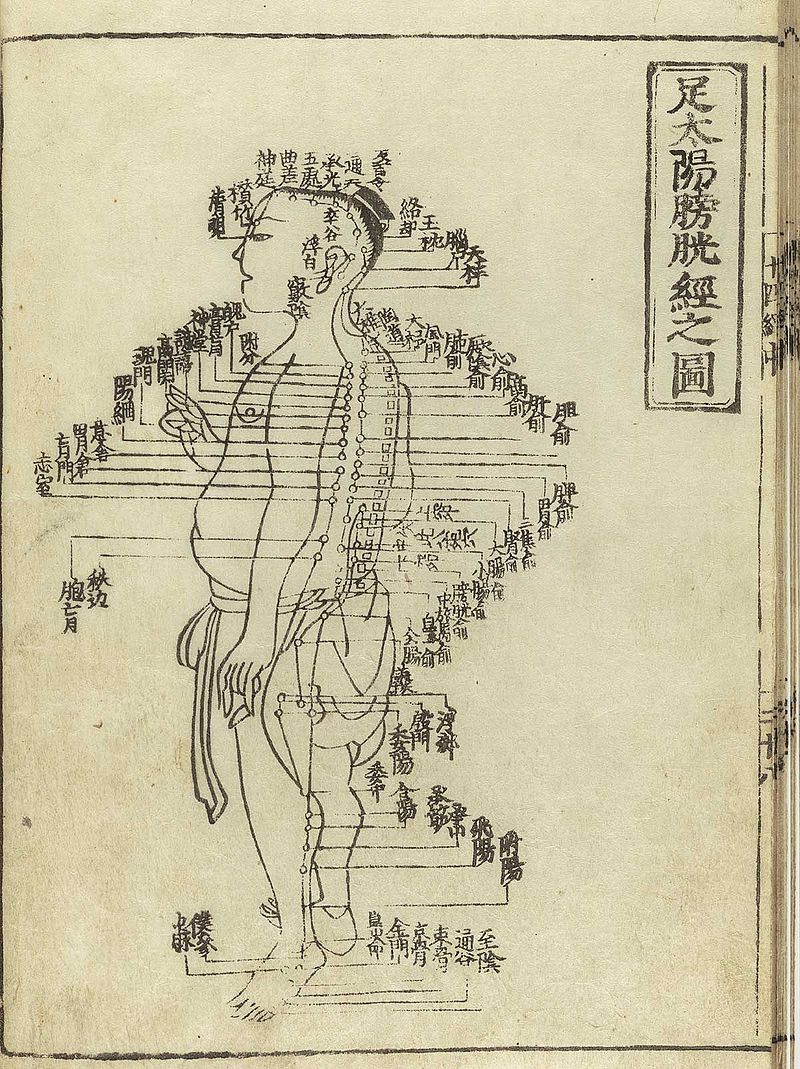 足太陽膀胱經之圖
神庭
曲差
五處
承光
通天
攅竹
睛明
率谷
浮白
竅陰
絡却
玉枕
腦
天柱
大椎
陶道
大杼
風門
肺俞
厥陰俞
心俞
膈俞
肝俞
胆俞
脾俞
胃俞
三焦俞
腎俞
大腸俞
小腸俞
膀胱俞
中膂俞
附分
魄戶
膏肓
神堂
譩譆
膈關
魂門
陽綱
意舍
胃倉
肓門
志室
秩边
胞肓
殷門
浮郄
委陽
委中
合陽
承筋
飛陽
附陽
僕參
申脉
金門
京骨
束骨
通谷
至陰